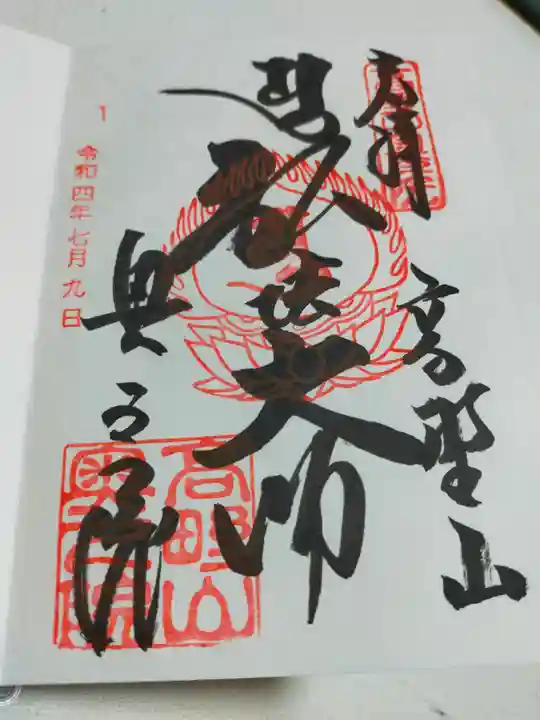 奉拝
高野山
弘法大師
奥之院
1 令和四年七月九日
高野山
奥之院